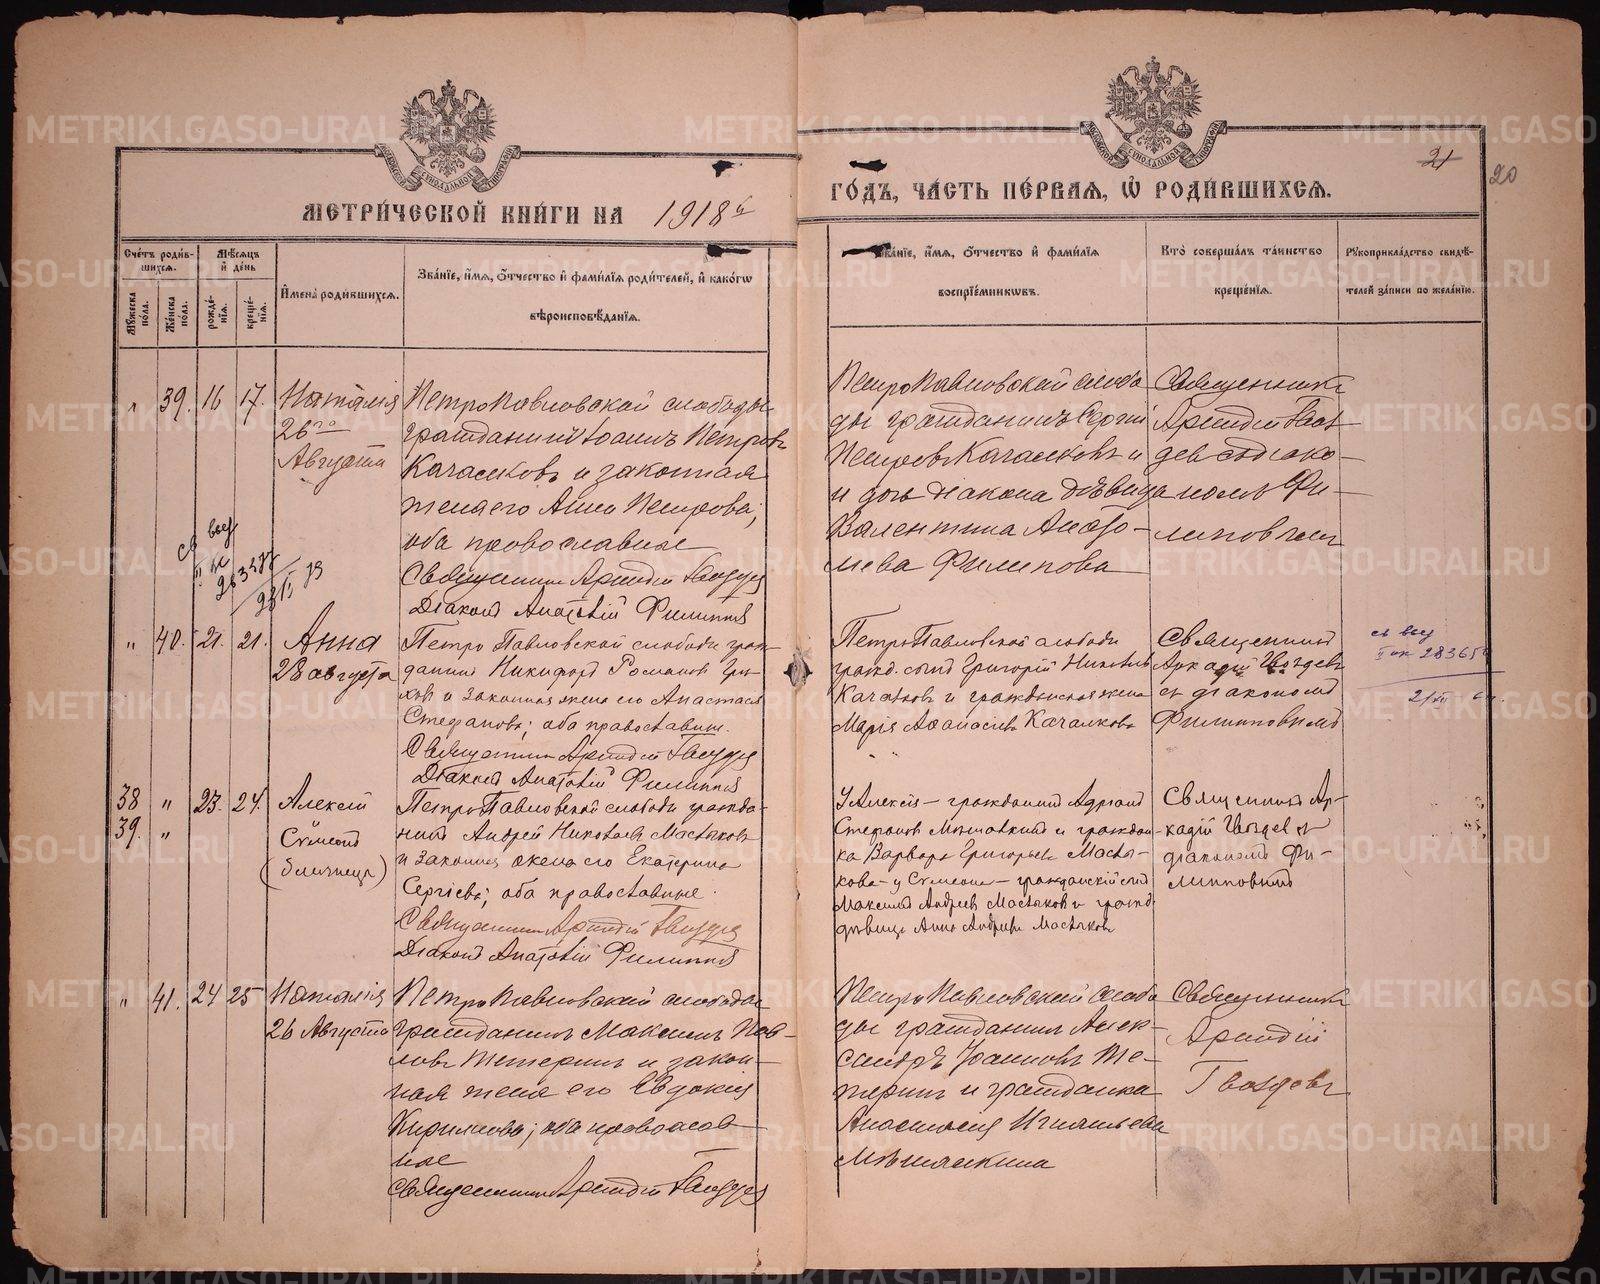 МЕТРИ́ЧЕСКОЙ КНИ́ГИ НА 1918й
ГО́ДЪ, ЧА́СТЬ ПЕ́РВАЯ, Ѿ РОДИ́ВШИХСЯ.
21
20
Сче́тъ роди́в-
шихся.
Мѣ́сяцъ
и҆ де́нь
Му́жеска
по́ла.
Же́нска
по́ла.
рожде́-
нїя.
креще́-
нїя.
И҆мена̀ роди́вшихся.
Зва́нїе, и҆́мя, ѻ҆́тчество и҆ фами́лїя роди́телей, и҆ како́гѡ
вѣроисповѣ́данїя.
Зва́нїе, и҆́мя, ѻ҆́тчество и҆ фами́лїя
воспрїе́мникѡвъ.
Кто̀ соверша́лъ та́инство
креще́нїя.
Рꙋкоприкла́дство свидѣ́-
телей за́писи по жела́нїю.
" 39. 16 17. Наталія
26го
Августа
Петропавловской слободы
гражданинъ Іоаннъ Петровъ
Качалковъ и законная
жена его Анна Петрова;
оба православные
Священникъ Аркадій Гвоздевъ
Діаконъ Анатолій Филипповъ
Петропавловской слобо
ды гражданинъ Сергий
Петровъ Качалковъ и
и дочь діакона дѣвица
Валентина Анато-
лиева Филипова
Священникъ
Аркадій Гвоз
девъ съ діако-
номъ Фи-
липовымъ
св выд
II ик
283472
23/II 73
" 40. 21. 21. Анна
28 августа
Петро Павловской слободы граж
данинъ Никифоръ Романов
и законная жена его Анастасія
Стефанова; оба православные.
Священникъ Аркадій Гвоздевъ
Діаконъ Анатолій Филипповъ
ПетроПавловской слободы
гражд. сынъ Григорій Николаев
Качалков и гражданская жена
Марія Афанасьева Качалкова
Священникъ
Аркадій Гвоздевъ
съ діакономъ
Филипповымъ
св выд
II ик 283654
38 " 23. 24. Алексій
39. " Сѵмеонъ
(близнецы)
ПетроПавловской слободы гражда-
нинъ Андрей Николаев Мастыков
и законная жена его Екатерина
Сергіева; оба православные.
Священникъ Аркадій Гвоздевъ
Діаконъ Анатолій Филипповъ
У Алексія - гражданинъ Адріанъ
Стефанов и граждан-
ка Варвара Григорьева Масты-
кова - у Сѵмеона - гражданскій сынъ
Максимъ Андреев Мастыков и гражд.
дѣвица Анна Андреева Мастыкова
Священникъ Ар-
кадій Гвоздев съ
діакономъ Фи-
липповымъ
" 41. 24 25 Наталія
26 Августа
Петропавловской слободы
гражданинъ Максимъ Пав-
ловъ Тетеринъ и закон-
ная жена его Евдокия
Кирилова; оба православ-
ные
Священникъ Аркадій Гвоздевъ
Петропавловской слобо
ды гражданинъ Алек-
сандръ Іоанновъ Те-
теринъ и гражданка
Анастасія Игнатьева
Священникъ
Аркадій
Гвоздевъ
METRIKI.GASO-URAL.RU